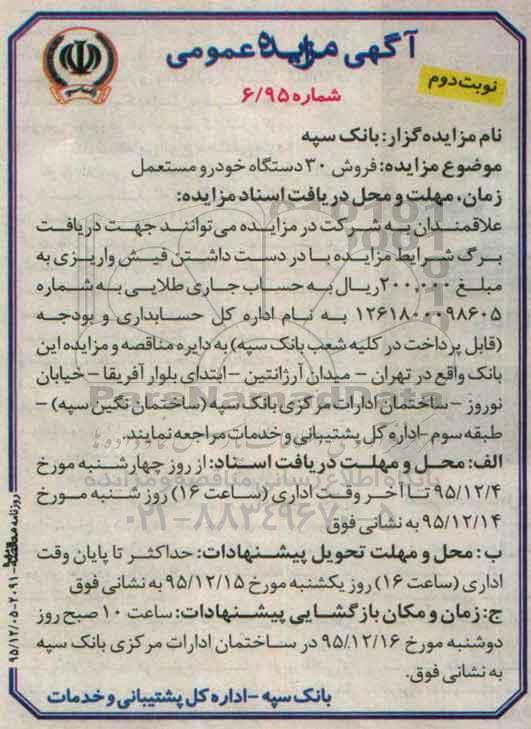 آگهی مزایده عمومی
نوبت دوم
شماره ۶/۹۵
نام مزایده گزار: بانک سپه
موضوع مزایده: فروش ۳۰ دستگاه خودرو مستعمل
زمان، مهلت و محل دریافت اسناد مزایده:
علاقمندان به شرکت در مزایده می‌توانند جهت دریافت
برگ شرایط مزایده با در دست داشتن فیش واریزی به
مبلغ ۲۰۰,۰۰۰ ریال به حساب جاری طلایی به شماره
۱۲۶۱۸۰۰۰۹۸۶۰۵ به نام اداره کل حسابداری و بودجه
(قابل پرداخت در کلیه شعب بانک سپه) به دایره مناقصه و مزایده این
بانک واقع در تهران – میدان آرژانتین – ابتدای بلوار آفریقا – خیابان
نوروز – ساختمان ادارات مرکزی بانک سپه (ساختمان نگین سپه) –
طبقه سوم – اداره کل پشتیبانی و خدمات مراجعه نمایند.
الف: محل و مهلت دریافت اسناد: از روز چهارشنبه مورخ
۹۵/۱۲/۴ تا آخر وقت اداری (ساعت ۱۶) روز شنبه مورخ
۹۵/۱۲/۱۴ به نشانی فوق
ب: محل و مهلت تحویل پیشنهادات: حداکثر تا پایان وقت
اداری (ساعت ۱۶) روز یکشنبه مورخ ۹۵/۱۲/۱۵ به نشانی فوق
ج: زمان و مکان بازگشایی پیشنهادات: ساعت ۱۰ صبح روز
دوشنبه مورخ ۹۵/۱۲/۱۶ در ساختمان ادارات مرکزی بانک سپه
به نشانی فوق.
بانک سپه – اداره کل پشتیبانی و خدمات
ParsNamadData
پایگاه اطلاع رسانی مناقصه و مزایده
۰۲۱-۸۸۳۴۹۶۷۰-۵
۹۵/۱۲/۰۵-۲۰۹۱